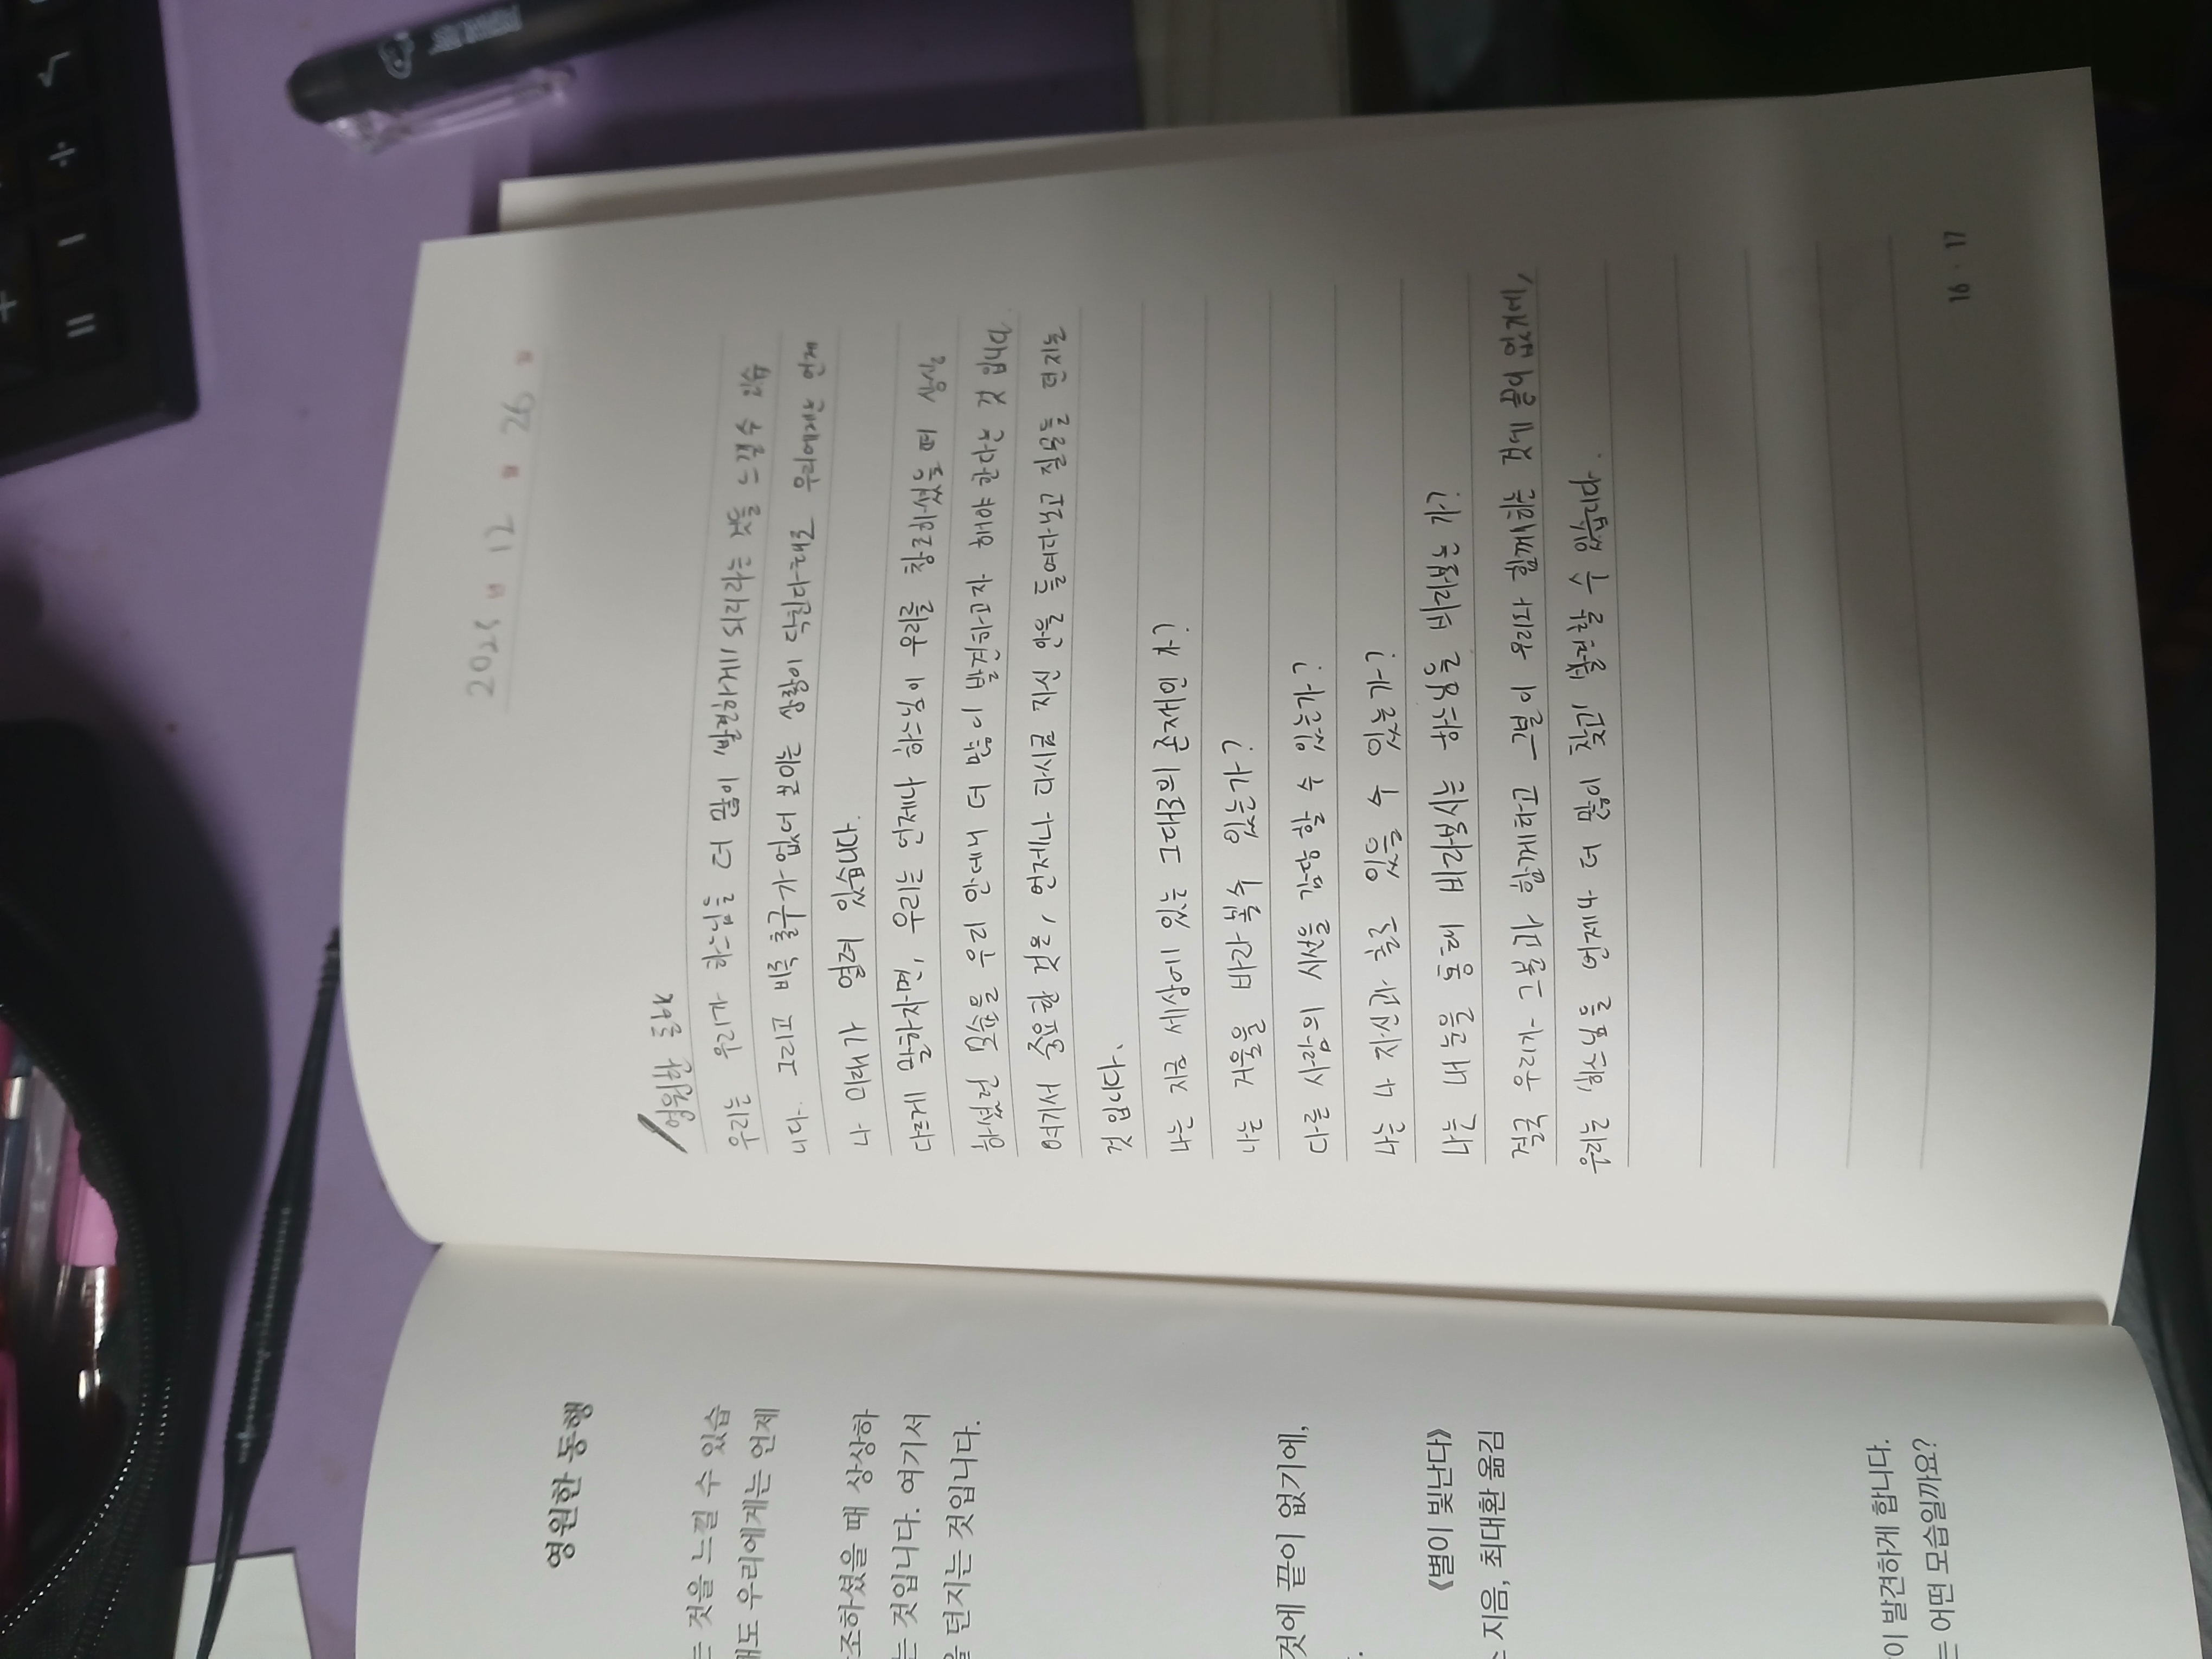 영원한 동행
는 것을 느낄 수 있습
대도 우리에게는 언제
조하셨을 때 상상하
는 것입니다. 여기서
을 던지는 것입니다.
것에 끝이 없기에,
《별이 빛난다》
지음, 최대환 옮김
이 발견하게 합니다.
는 어떤 모습일까요?
2025 년 12 월 26 일
영원한 동행
우리는 우리가 하느님을 더 많이 '발견하게' 되리라는 것을 느낄수 있습
니다. 그리고 비록 출구가 없어 보이는 상황이 닥친다해도 우리에게는 언제
나 미래가 열려 있습니다.
다르게 말하자면, 우리는 언제나 하느님이 우리를 창조하셨을 때 상상
하셨던 모습을 우리 안에서 더 많이 발견하고자 해야 한다는 것 입니다.
여기서 중요한 것은, 언제나 다시금 자신 안을 들여다보고 질문을 던지는
것 입니다.
나는 지금 세상에 있는 그대로의 존재인 가?
나는 거울을 바라 볼수 있는가?
다른 사람의 시선을 감당할 수 있는가?
나는 나 자신과 홀로 있을 수 있는가?
나는 내 눈을 통해 바라보시는 하느님을 바라보는 가?
결국 우리가 그분과 함께하고 그분이 우리와 함께하는 것에 끝이 없기에,
우리는 '하느님을 언제나 더 많이 찾고' 발견할 수 있습니다.
16 · 17